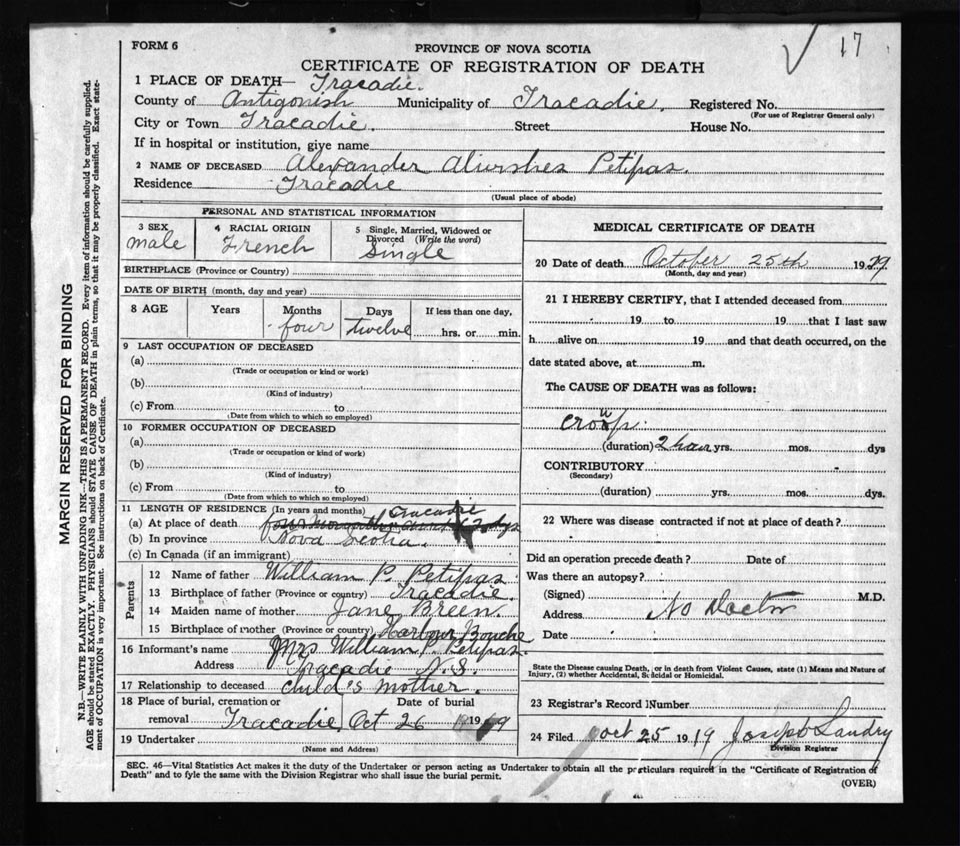 17
FORM 6
PROVINCE OF NOVA SCOTIA
CERTIFICATE OF REGISTRATION OF DEATH
1 PLACE OF DEATH— Tracadie.
County of Antigonish Municipality of Tracadie. Registered No.
(For use of Registrar General only)
City or Town Tracadie. Street House No.
If in hospital or institution, give name
2 NAME OF DECEASED Alexander Petipas.
Residence Tracadie
(Usual place of abode)
MARGIN RESERVED FOR BINDING
N.B.—WRITE PLAINLY WITH UNFADING INK—THIS IS A PERMANENT RECORD. Every item of information should be carefully supplied.
AGE should be stated EXACTLY. PHYSICIANS should STATE CAUSE OF DEATH in plain terms, so that it may be properly classified. Exact state-
ment of OCCUPATION is very important. See instructions on back of Certificate.
PERSONAL AND STATISTICAL INFORMATION
3 SEX male
4 RACIAL ORIGIN French
5 Single, Married, Widowed or
Divorced (Write the word)
Single
BIRTHPLACE (Province or Country)
DATE OF BIRTH (month, day and year)
8 AGE Years Months Days If less than one day,
four twelve hrs. or min.
9 LAST OCCUPATION OF DECEASED
(a)
(Trade or occupation or kind or work)
(b)
(Kind of industry)
(c) From to
(Date from which to which so employed)
10 FORMER OCCUPATION OF DECEASED
(a)
(Trade or occupation or kind of work)
(b)
(Kind of industry)
(c) From to
(Date from which to which so employed)
11 LENGTH OF RESIDENCE (In years and months) Tracadie
(a) At place of death
(b) In province Nova Scotia.
(c) In Canada (if an immigrant)
Parents
12 Name of father William P. Petipas
13 Birthplace of father (Province or country) Tracadie.
14 Maiden name of mother Jane Breen.
15 Birthplace of mother (Province or country) Harbour Bouche
16 Informant's name Mrs William P. Petipas.
Address Tracadie N.S.
17 Relationship to deceased child's mother.
18 Place of burial, cremation or Date of burial
removal Tracadie. Oct 26 19
19 Undertaker
(Name and Address)
MEDICAL CERTIFICATE OF DEATH
20 Date of death October 25th 19
(Month, day and year)
21 I HEREBY CERTIFY, that I attended deceased from
19 to 19 that I last saw
h alive on 19 and that death occurred, on the
date stated above, at m.
The CAUSE OF DEATH was as follows:
croup.
(duration) yrs. mos. dys
CONTRIBUTORY
(Secondary)
(duration) yrs. mos. dys.
22 Where was disease contracted if not at place of death?
Did an operation precede death? Date of
Was there an autopsy?
(Signed) M.D.
Address No Doctor
Date
State the Disease causing Death, or in death from Violent Causes, state (1) Means and Nature of
Injury, (2) whether Accidental, Suicidal or Homicidal.
23 Registrar's Record Number
24 Filed Oct 25 1919 Joseph Landry
Division Registrar
SEC. 46—Vital Statistics Act makes it the duty of the Undertaker or person acting as Undertaker to obtain all the particulars required in the "Certificate of Registration of
Death" and to fyle the same with the Division Registrar who shall issue the burial permit.
(OVER)